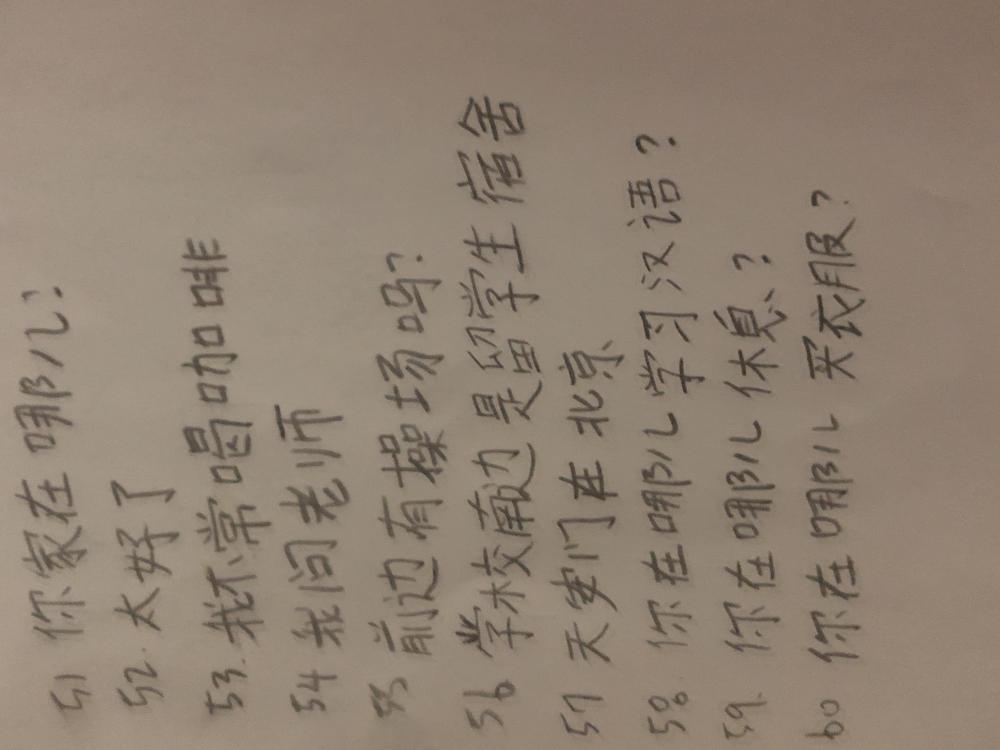 51 你家在哪儿?
52. 太好了
53. 我不常喝咖啡
54 我问老师
55 前边有操场吗?
56 学校南边是留学生宿舍
57 天安门在北京
58. 你在哪儿学习汉语?
59. 你在哪儿休息?
60 你在哪儿买衣服?